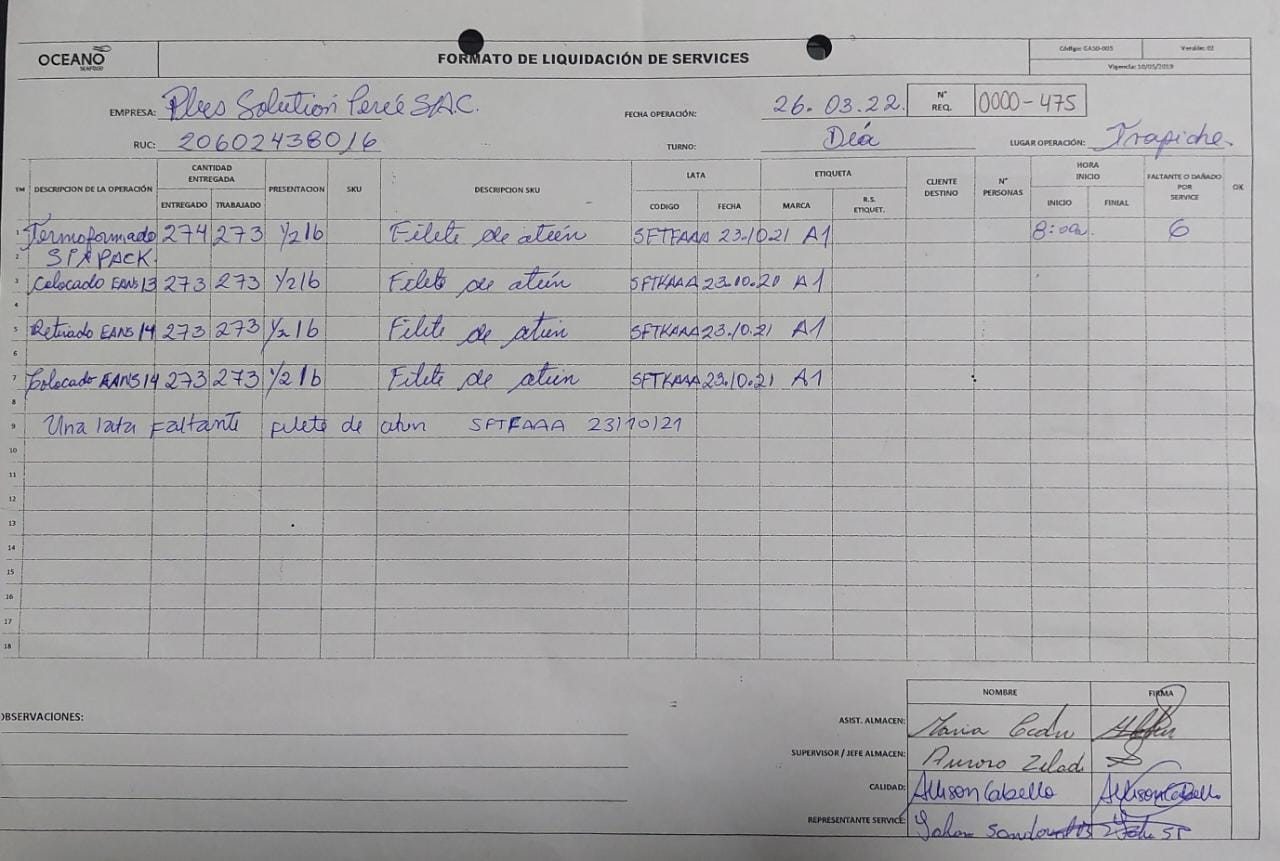 OCEANO
SEAFOOD
FORMATO DE LIQUIDACIÓN DE SERVICES
Código: GASD-005 Versión: 02
Vigencia: 10/05/2019
EMPRESA: Plus Solution Perú S.A.C. FECHA OPERACIÓN: 26.03.22. N° REQ. 0000-475
RUC: 20602438016 TURNO: Día LUGAR OPERACIÓN: Trapiche.
DESCRIPCION DE LA OPERACIÓN CANTIDAD ENTREGADA ENTREGADO TRABAJADO PRESENTACION SKU DESCRIPCION SKU LATA CODIGO FECHA ETIQUETA MARCA R.S. ETIQUET. CLIENTE DESTINO N° PERSONAS HORA INICIO INICIO FINIAL FALTANTE O DAÑADO POR SERVICE OK
1 Termoformado 274 273 1/2 lb Filete de atún SFTFAAA 23.10.21 A1 8:00a. 6
2 SIXPACK.
3 Colocado EANS13 273 273 1/2 lb Filete de atún SFTKAAA 23.10.20 A1
4
5 Retirado EANS 14 273 273 1/2 lb Filete de atún SFTKAAA 23.10.21 A1
6
7 Colocado EANS14 273 273 1/2 lb Filete de atún SFTKAAA 23.10.21 A1
8
9 Una lata faltante filete de atun SFTFAAA 23/10/21
10
11
12
13
14
15
16
17
18
NOMBRE FIRMA
OBSERVACIONES:
ASIST. ALMACEN: Maria
SUPERVISOR / JEFE ALMACEN:
CALIDAD: Allison Cabello Allison Cabello
REPRESENTANTE SERVICE: